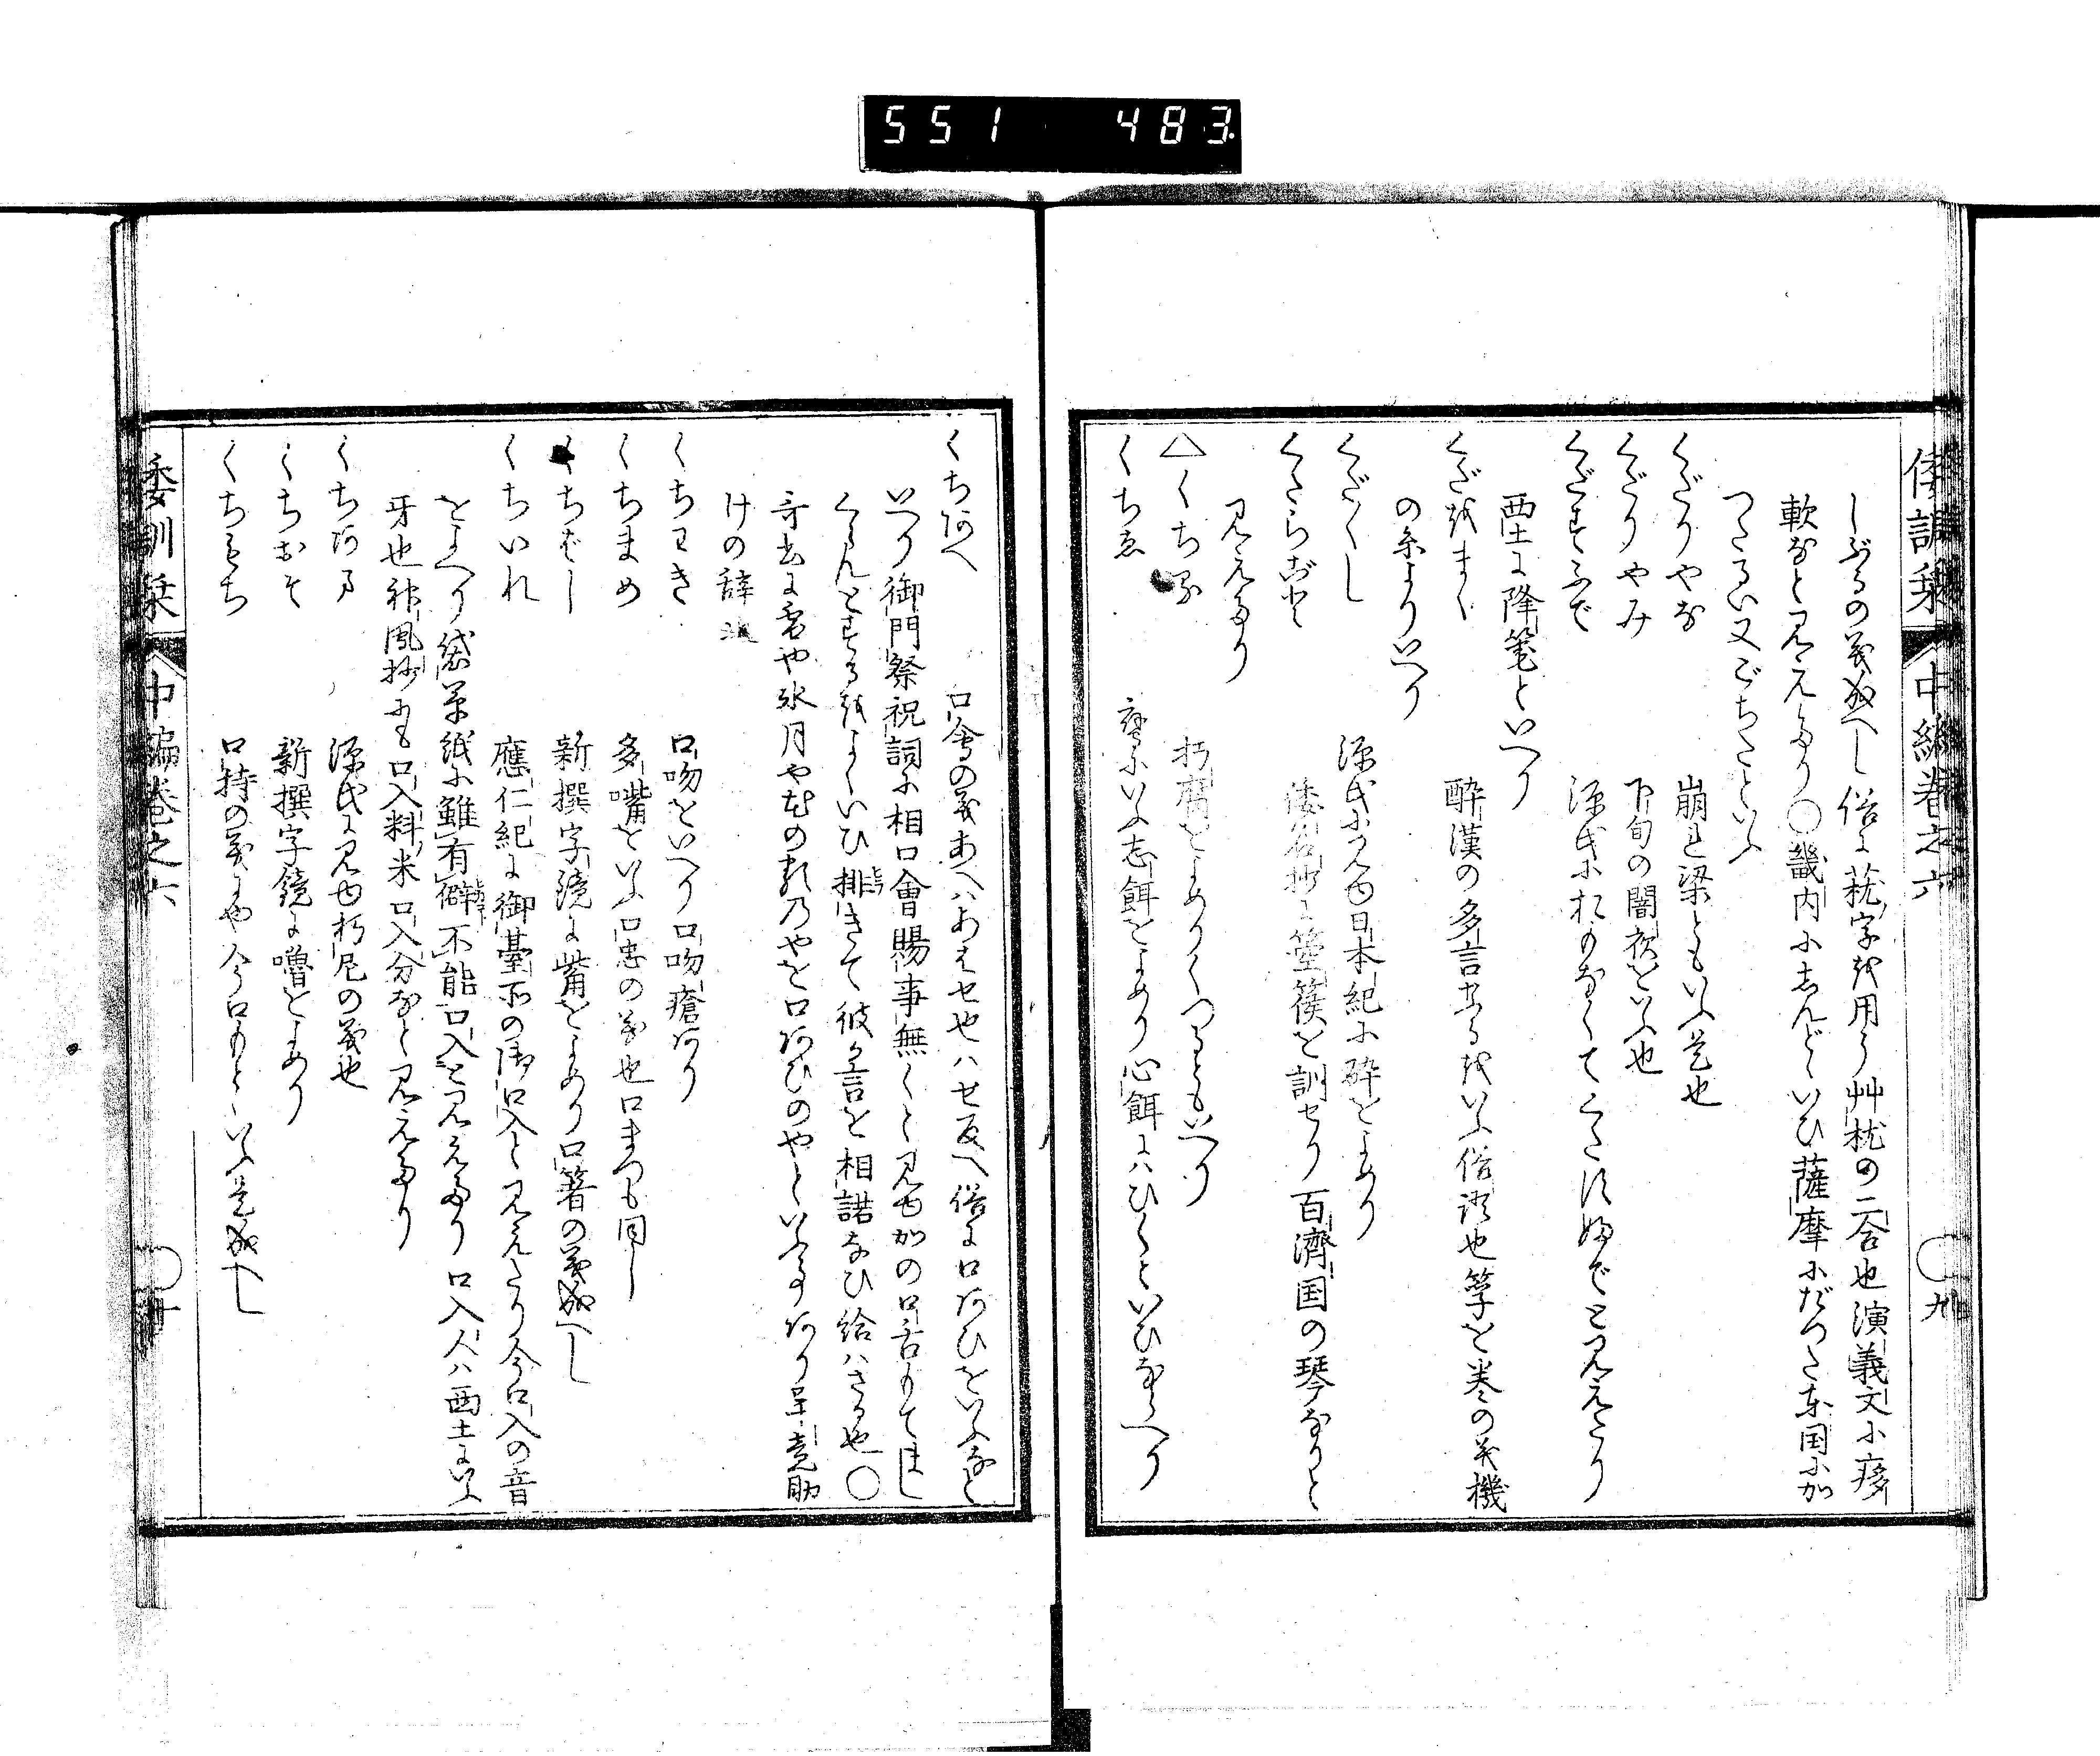 551 483
倭訓栞 中編巻之六 〇九
しぶるの義成へし俗に䔉字を用う艸枕の二合也演義文に痑
軟なと見えたり〇畿内にしんどいひ薩摩にだつた東国にか
つたるい又ごちたといふ
くだりやな 崩レ梁ともいふ是也
くだりやみ 下旬の闇夜をいふ也
くだすふで 源氏にれりなくてくたすふでと見えたり
西土に降筆といへり
くだをまく 酔漢の多言なるをいふ俗語也筟を巻の義機
の糸よりいへり
くだくし 源氏に見ゆ日本紀に砕をよめり
くたらごと 倭名抄に箜篌を訓せり百済国の琴なりと
見えたり
△くちる 朽腐をよめりくつるともいへり
くちゑ 鷹にいふ志餌をよめり心餌にハひくといひならへり
くちあへ 口会の義あへハあハせ也ハセ反へ俗に口あひをいふなと
いへり御門祭祝詞に相口會賜事無くと見ゆかの口舌もてまし
くるんとするをよくいひ排きて彼か言を相諾なひ給ハさる也〇
奇書に雪や氷月や花の類乃やを口あひのやといふ事あり呈堯助
けの辞也
くちわき 口吻をいへり口吻瘡あり
くちまめ 多嘴をいふ口忠の義也口まつも同し
くちばし 新撰字鏡に觜をよめり口箸の義成へし
くちいれ 應仁紀に御臺所の御口入と見えたり今口入の音
をよへり袋草紙に雖有僻不能口入と見えたり 口入人ハ西土にいふ
牙也神風抄にも口入料米口入分なと見えたり
くちあま 源氏に見ゆ朽尼の義也
くちおそ 新撰字鏡に噜をよめり
くちもち 口持の義にや今口もとといふ是成へし
委訓栞 中編巻之六 〇十